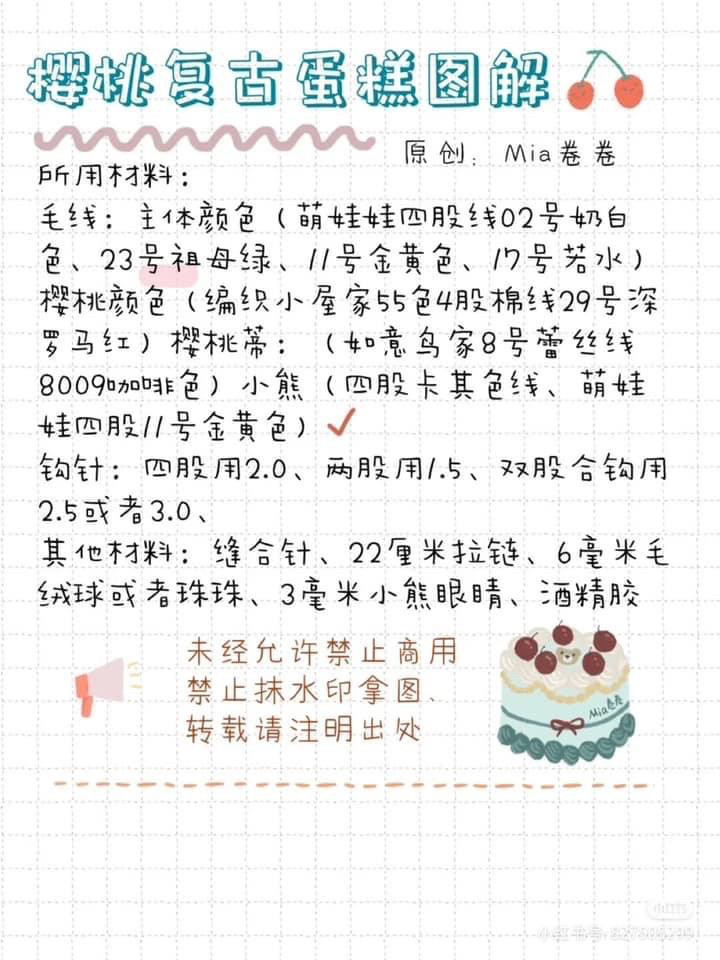 樱桃复古蛋糕图解
原创：Mia卷卷
所用材料：
毛线：主体颜色（萌娃娃四股线02号奶白
色、23号祖母绿、11号金黄色、17号若水）
樱桃颜色（编织小屋家55色4股棉线29号深
罗马红）樱桃蒂：（如意鸟家8号蕾丝线
8009咖啡色）小熊（四股卡其色线、萌娃
娃四股11号金黄色）
钩针：四股用2.0、两股用1.5、双股合钩用
2.5或者3.0、
其他材料：缝合针、22厘米拉链、6毫米毛
绒球或者珠珠、3毫米小熊眼睛、酒精胶
未经允许禁止商用
禁止抹水印拿图、
转载请注明出处
Mia卷卷
小红书
小红书号:827585299